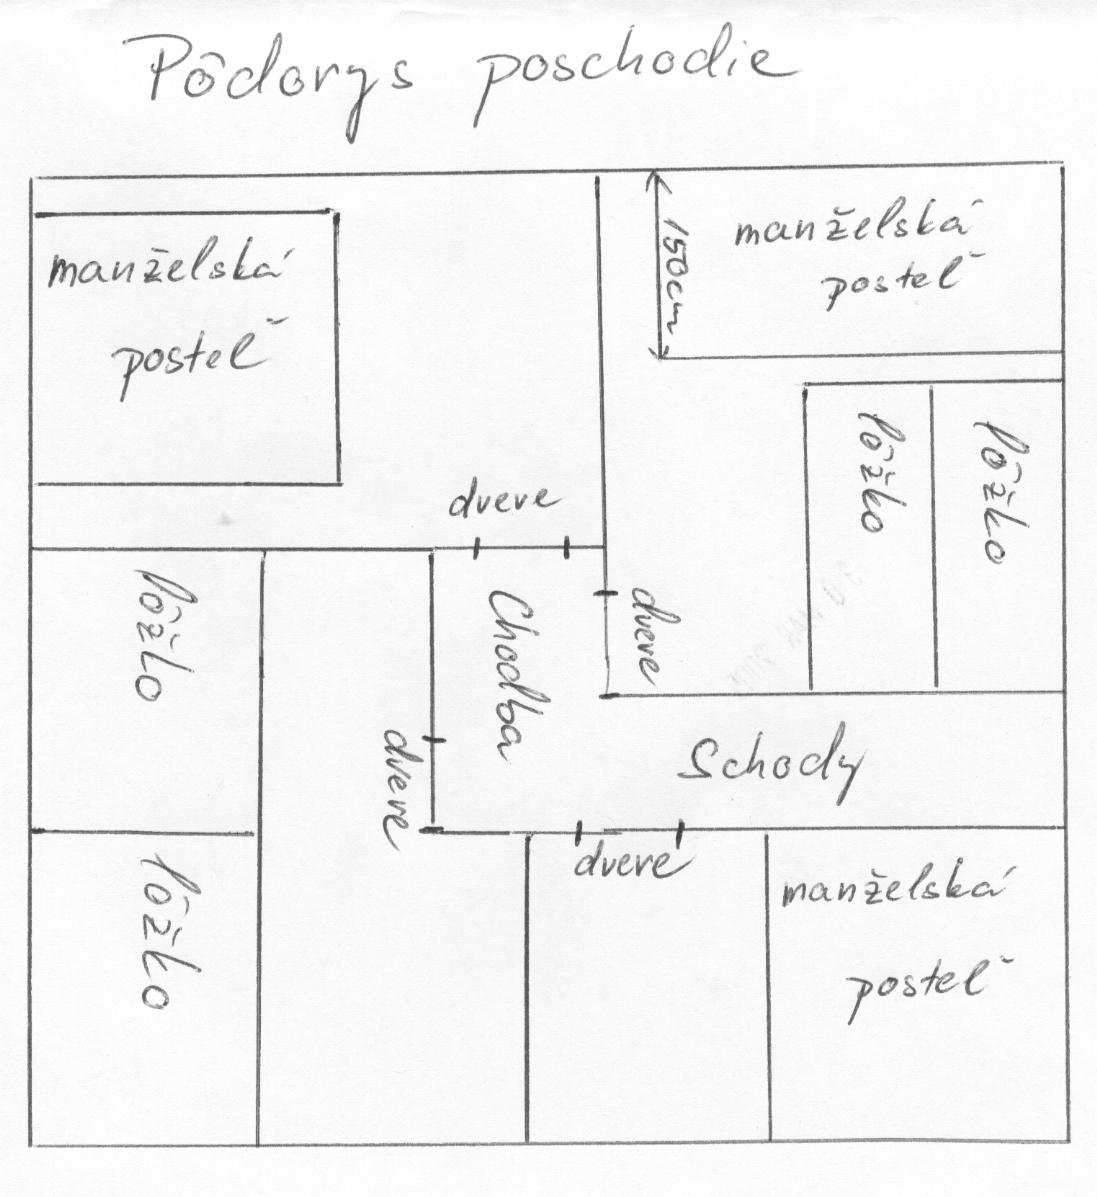 Pôdorys poschodie
manželská
posteľ
150cm
manželská
posteľ
lôžko
lôžko
dvere
lôžko
Chodba
dvere
dvere
Schody
lôžko
dvere
manželská
posteľ